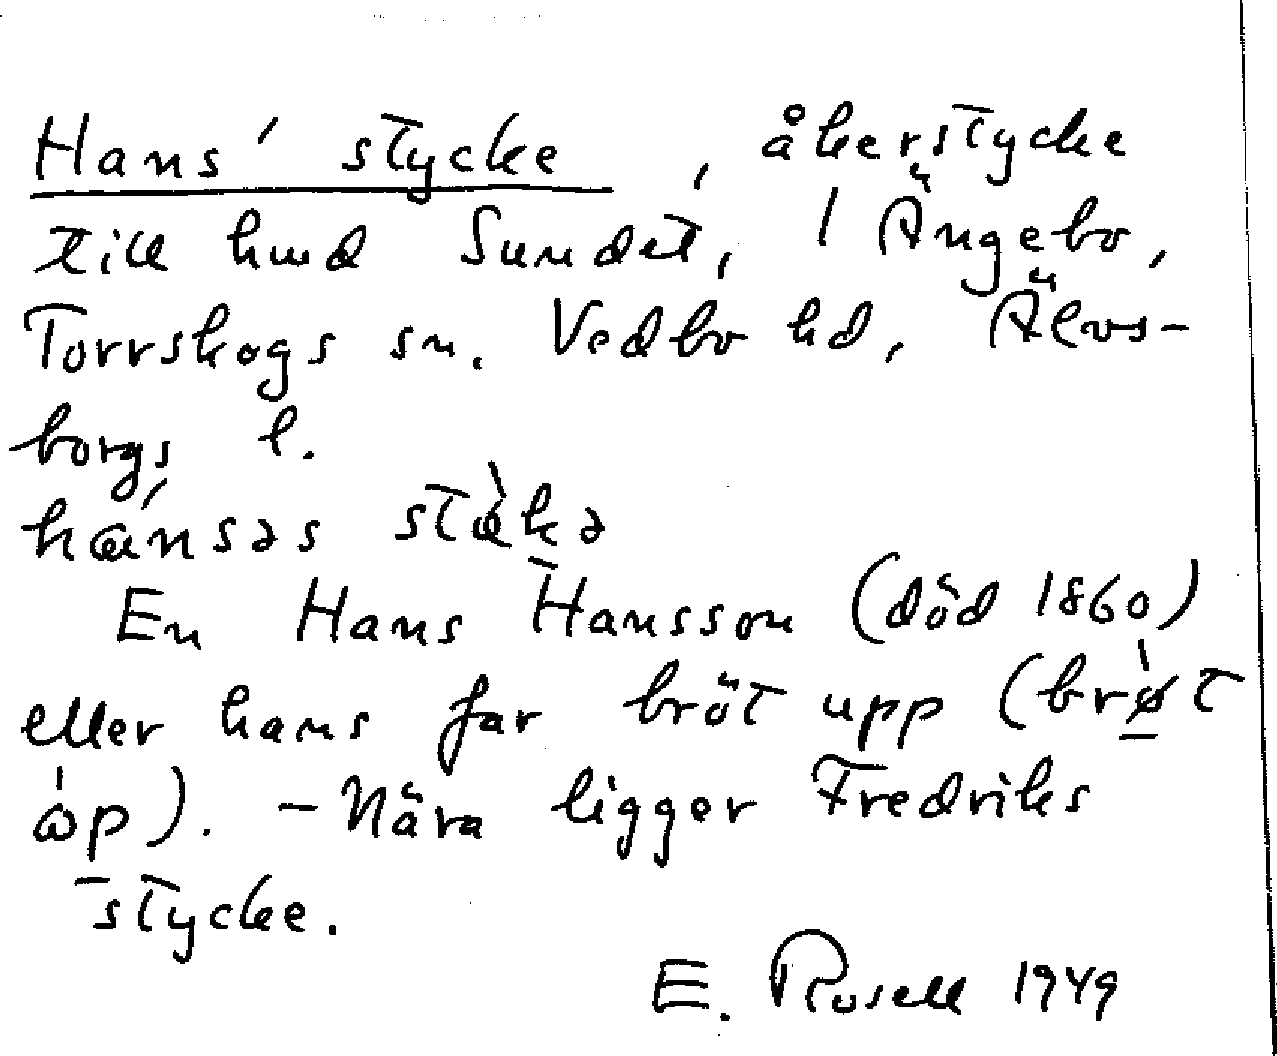 Hans' stycke, åkerstycke
till hmd Sundet, 1 Ängebo,
Torrskogs sn. Vedbo hd, Älvs-
borgs l.
hánsəs
En Hans Hansson (död 1860)
eller hans far bröt upp (brø̀t
òp). – Nära ligger Fredriks
stycke.
E. Rosell 1949